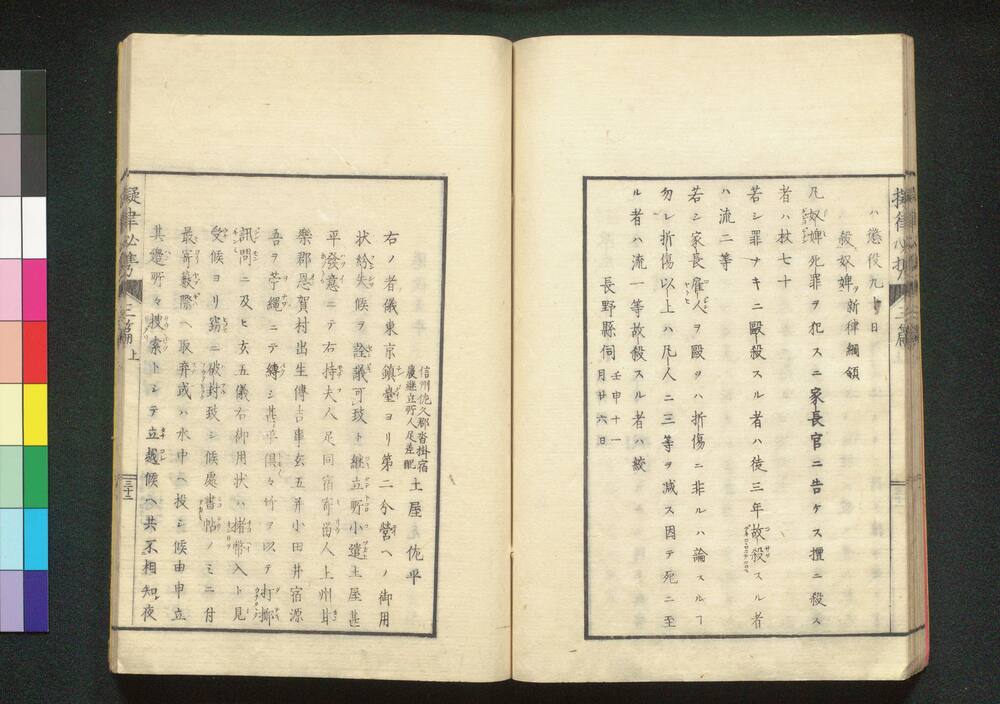 ハ懲役九十日
殺奴婢ヲ新律綱領
凡奴婢死罪ヲ犯スニ家長官ニ告ケス擅ニ殺ス
者ハ杖七十
若シ罪ナキニ毆殺スル者ハ徒三年故殺スル者
ハ流二等
若シ家長雇人ヲ毆ツハ折傷ニ非ルハ論スルヿ
勿レ折傷以上ハ凡人ニ三等ヲ減ス因テ死ニ至
ル者ハ流一等故殺スル者ハ絞
長野縣伺 壬申十一月廿六日
信州佐久郡沓掛宿
廣繼立所人足差配
土屋佐平
右ノ者儀東京鎮臺ヨリ第二分營ヘノ御用
状紛失候ヲ詮議可致ト繼立所小遣土屋甚
平發意ニテ右持夫人足同宿寄畄人上州甘
樂郡恩賀村出生傳吉事玄五并小田井宿源
吾ヲ苧繩ニテ縛シ甚平倶々竹ヲ以テ打擲
訊問ニ及ヒ玄五儀右御用状ハ楮幣入ト見
受候ヨリ竊ニ破封致シ候處書帖ノミニ付
最寄藪際ヘ取弃或ハ水中ヘ投シ候由申立
其邊所々捜索トシテ立越候ヘ共不相知夜
擬律必携 三篇 上
三十二